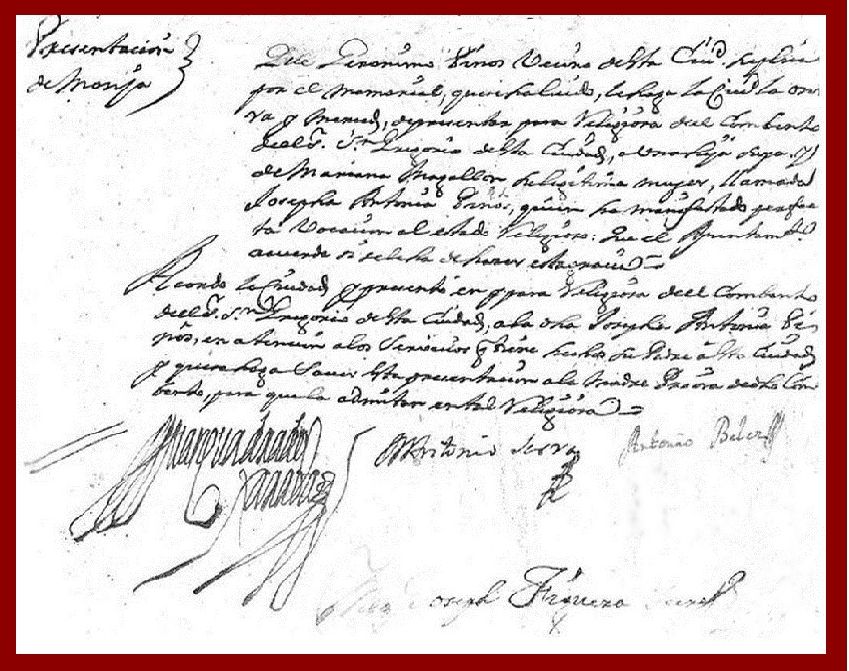 Presentación
de Monja
Que Geronimo Piños Vecino desta Ciud. suplica
por el memorial, que se ha leido, le haga la Ciud. la onr-
ra y merced, de presentar para Religiosa del Combento
del Sr. Sn. Gregorio desta Ciudad, a una hija suya, y
de Mariana Magallon su legitima mujer, llamada
Josepha Antonia Piños, quien ha manifestado perfec-
ta Vocacion al estado Religioso: Que el Ayuntam.to
acuerde si se le ha de hacer esta gracia
Acordo la Ciudad, presente en para Religiosa del Combento
del Sr. Sn. Gregorio desta Ciudad, a la dha Josepha Antonia Pi-
ños, en atencion a los Servicios q tiene hechos su Padre a esta Ciudad
y que se haga Saver esta presentacion a la Madre Priora de dho Com-
bento, para que la admitan en tal Religiosa
Antonio Serra
Antonio Beler
Joseph Figuera Secret